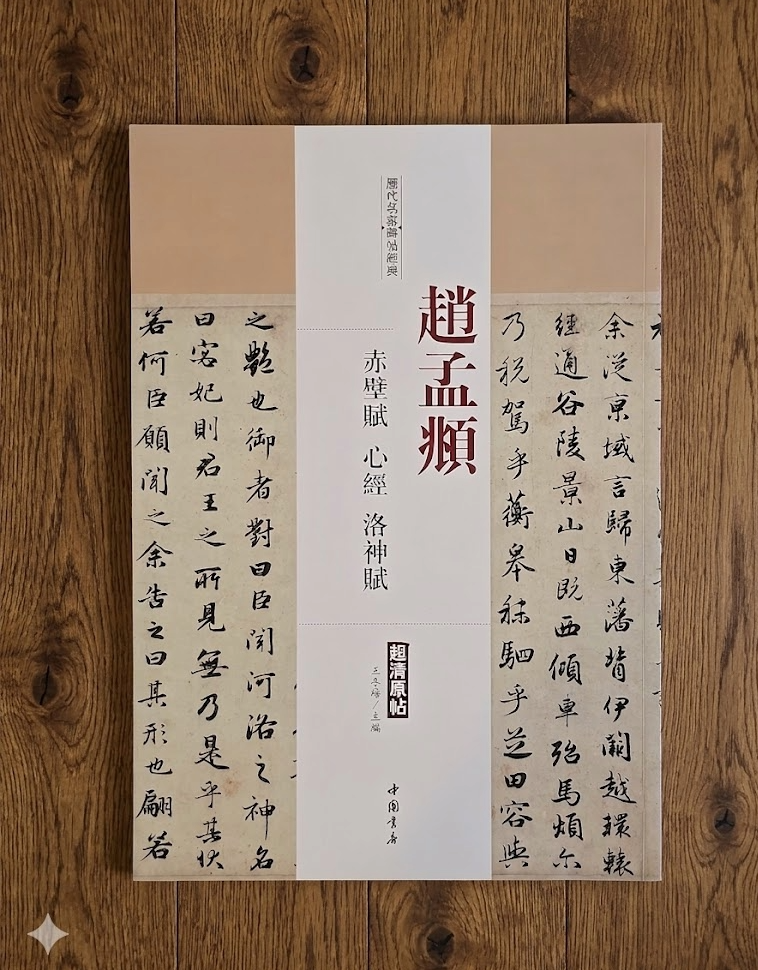 余從京域言歸東藩背伊闕越轘轅
經通谷陵景山日既西傾車殆馬煩尔
乃税駕乎蘅皋秣駟乎芝田容與
趙孟頫
赤壁賦 心經 洛神賦
超清原帖
主編
中国書店
之艷也御者對曰臣聞河洛之神名
曰宓妃則君王之所見無乃是乎其狀
若何臣願聞之余告之曰其形也翩若